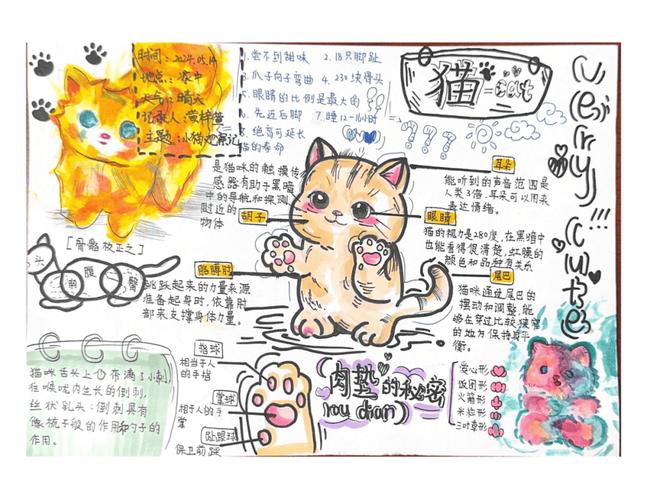 时间:2024.05.14
地点:家中
天气:晴天
记录人:黄梓萱
主题:小猫观察记
1.尝不到甜味 2.18只脚趾
3.爪子向子弯曲 4.230块骨头
5.眼睛的比例是最大的
6.先近后脚 7.睡12-16小时
8.绝育可延长
猫的寿命
猫=cat
Very cute!!!
是猫咪的触摸传
感器有助于黑暗
中的导航和探测
附近的
物体
胡子
耳朵
能听到的声音范围是
人类3倍,耳朵可以用来
表达情绪。
眼睛
猫的视力是280度,在黑暗中
也能看得很清楚,虹膜的
颜色和品种有关
尾巴
猫咪通过尾巴的
摆动和调整,能
够在穿过比较狭窄
的地方保持身平
衡。
[骨骼放正之]
头
胸
腹
臀
胳膊肘
跳跃起来的力量来源
准备起身时,依靠肘
部来支撑身体力量。
猫咪舌头上布满了小刺,
在喉咙内生长的倒刺,
丝状乳头:倒刺具有
像梳子般的作用和勺子的
作用。
指球
相当于人
的手指
掌球
相于人的手
掌
趾跟球
保卫前踝
肉垫的秘密
rou dian
爱心形
饭团形
火箭形
米粒形
三叶草形